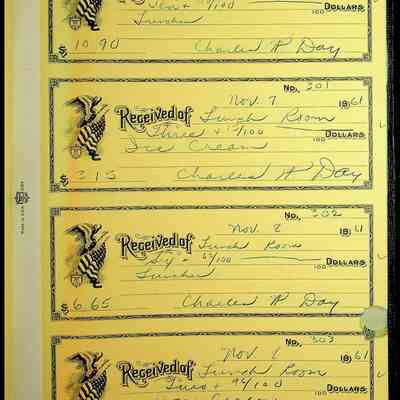 Ten + 90/100
100 DOLLARS
Lunches
$ 10.90 Charles W Day
NO. 301
Nov. 7 1861
Received of Lunch Room
Three + 15/100
100 DOLLARS
Ice Cream
$ 3.15 Charles W Day
NO. 302
Nov. 8 1861
Received of Lunch Room
Six + 65/100
100 DOLLARS
Lunches
$ 6.65 Charles W Day
NO. 303
Nov. 1861
Received of Lunch Room
94/100
100 DOLLARS
MADE IN U.S.A.